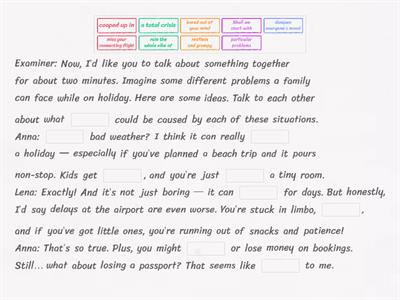 cooped up in
a total crisis
bored out of
your mind
Shall we
start with
dampen
everyone's mood
miss your
connecting flight
ruin the
whole vibe of
restless
and grumpy
particular
problems
Examiner: Now, I'd like you to talk about something together
for about two minutes. Imagine some different problems a family
can face while on holiday. Here are some ideas. Talk to each other
about what could be caused by each of these situations.
Anna: bad weather? I think it can really
a holiday — especially if you've planned a beach trip and it pours
non-stop. Kids get , and you're just a tiny room.
Lena: Exactly! And it's not just boring — it can for days. But honestly,
I'd say delays at the airport are even worse. You're stuck in limbo, ,
and if you've got little ones, you're running out of snacks and patience!
Anna: That's so true. Plus, you might or lose money on bookings.
Still... what about losing a passport? That seems like to me.